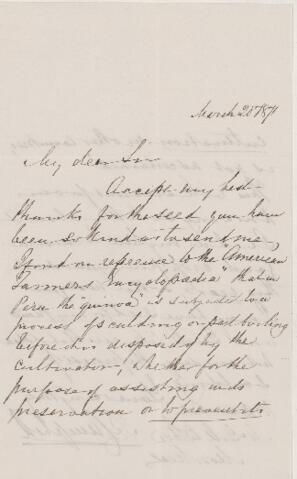 March 20 1871
My dear Sir
Accept my best
thanks for the seed you have
been so kind as to send me,
I find on reference to the "American
Farmers Encyclopædia" that in
Peru the "quinoa" is subjected to a
process of scalding or part boiling
before it is disposed of by the
cultivator, whether for the
purpose of assisting in its
preservation or to prevent its